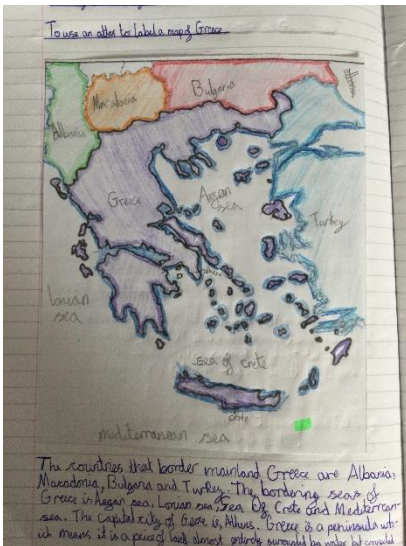 To use an atlas to label a map of Greece
Albania
Macadonia
Bulgaria
Greece
Aegan
sea
Turkey
Ionian
sea
sea of crete
crete
mediterranean sea
The countries that border mainland Greece are Albania,
Macadonia, Bulgaria and Turkey. The bordering seas of
Greece is Aegan sea, Ionian sea, Sea of Crete and Mediterran-
sea. The Capital city of Greece is, Athens. Greece is a peninsula wh-
ich means it is a piece of land almost entirely surrounded by water but connected